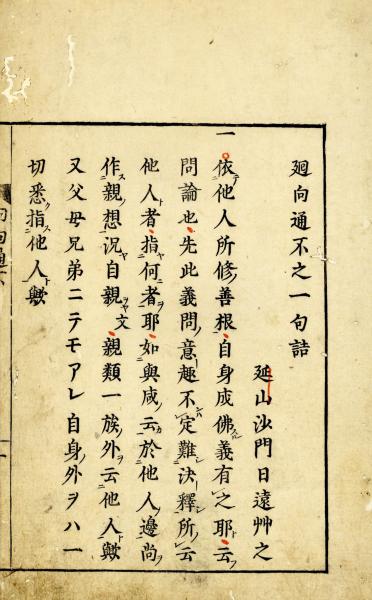 廻向通不之一句詰
延山沙門日遠艸之
一依他人所修善根自身成佛義有之耶云
問論也先此義問意趣不定難決釋所云
他人者指何者耶如與咸云於他人邊尚
作親想況自親文親類一族外云他人歟
又父母兄弟ニテモアレ自身ノ外ヲハ一
切悉指他人歟